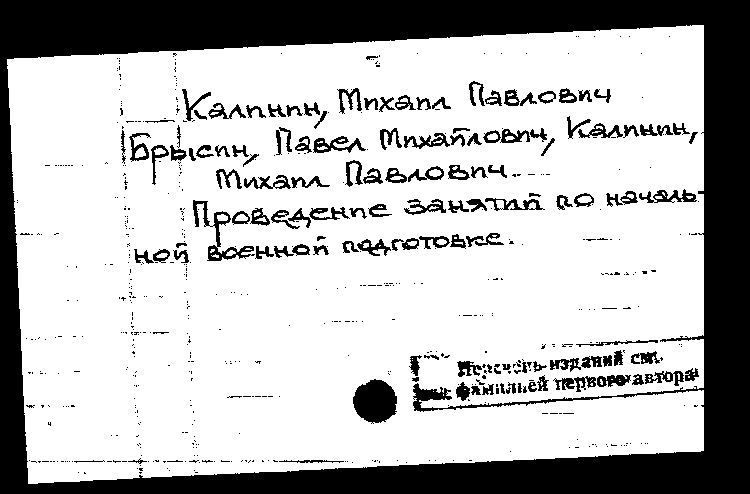 Калинин, Михаил Павлович
Брысин, Павел Михайлович, Калинин,
Михаил Павлович.
Проведение занятий по началь-
ной военной подготовке.
Перечень изданий см.
фамилией первого автора